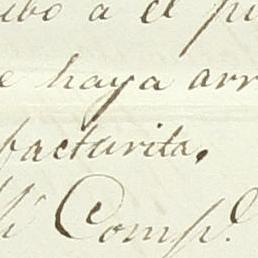 ibo a el pu
e haya arr
facturita.
Comp.º